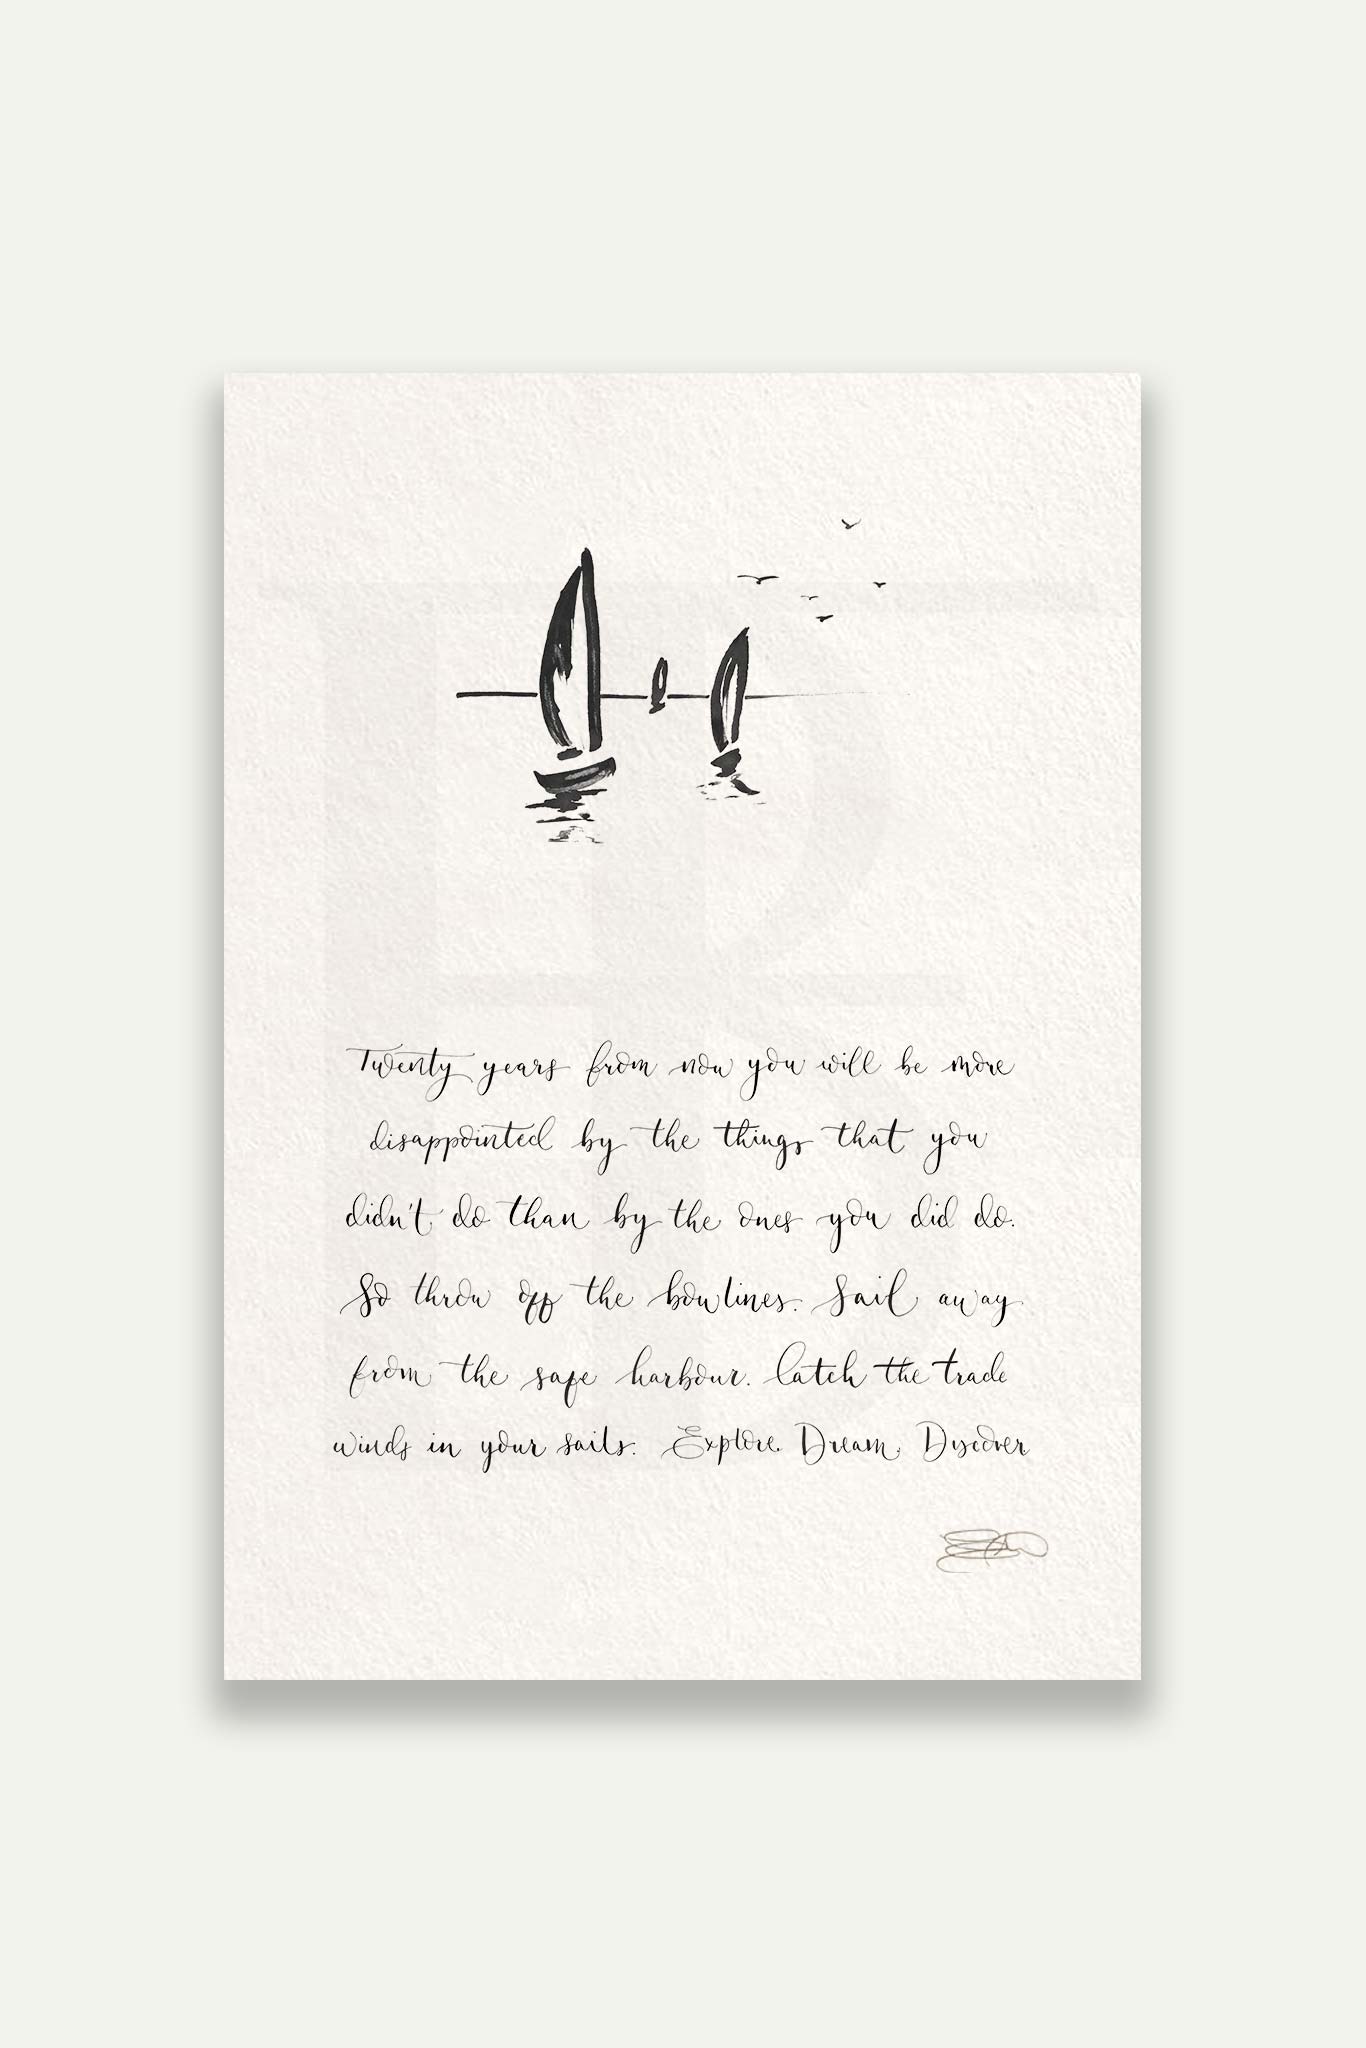 Twenty years from now you will be more
disappointed by the things that you
didn't do than by the ones you did do.
So throw off the bowlines. Sail away
from the safe harbour. Catch the trade
winds in your sails. Explore. Dream. Discover